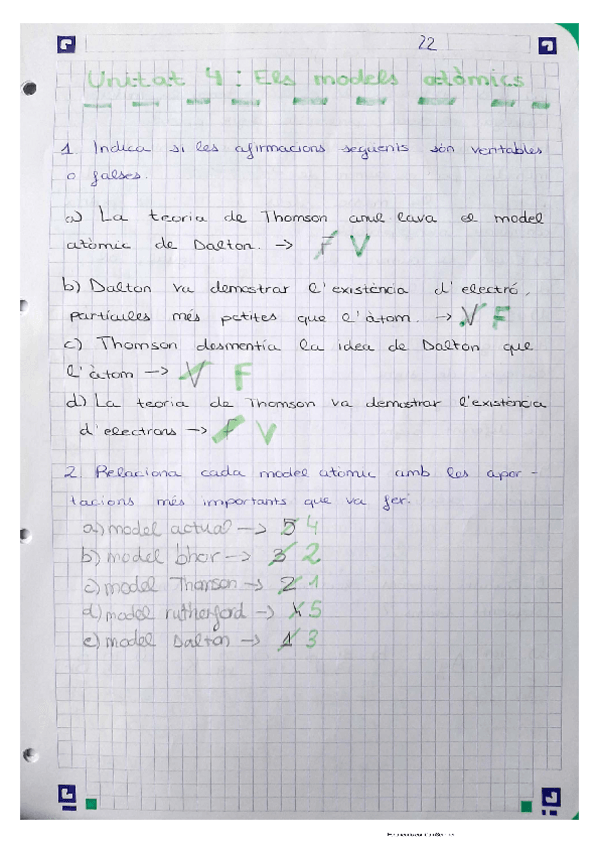 22
Unitat 4: Els models atòmics
1 Indica si les afirmacions seguents són veritables
o falses.
a) La teoria de Thomson anul·lava el model
atòmic de Dalton. -> F V
b) Dalton va demostrar l'existència d'electró,
partícules més petites que l'àtom. -> V F
c) Thomson desmentia la idea de Dalton que
l'àtom -> V F
d) La teoria de Thomson va demostrar l'existència
d'electrons -> F V
2. Relaciona cada model atòmic amb les apor-
tacions més importants que va fer:
a) model actual -> 5 4
b) model bhor -> 3 2
c) model Thomson -> 2 1
d) model rutherford -> 4 5
e) model Dalton -> 1 3